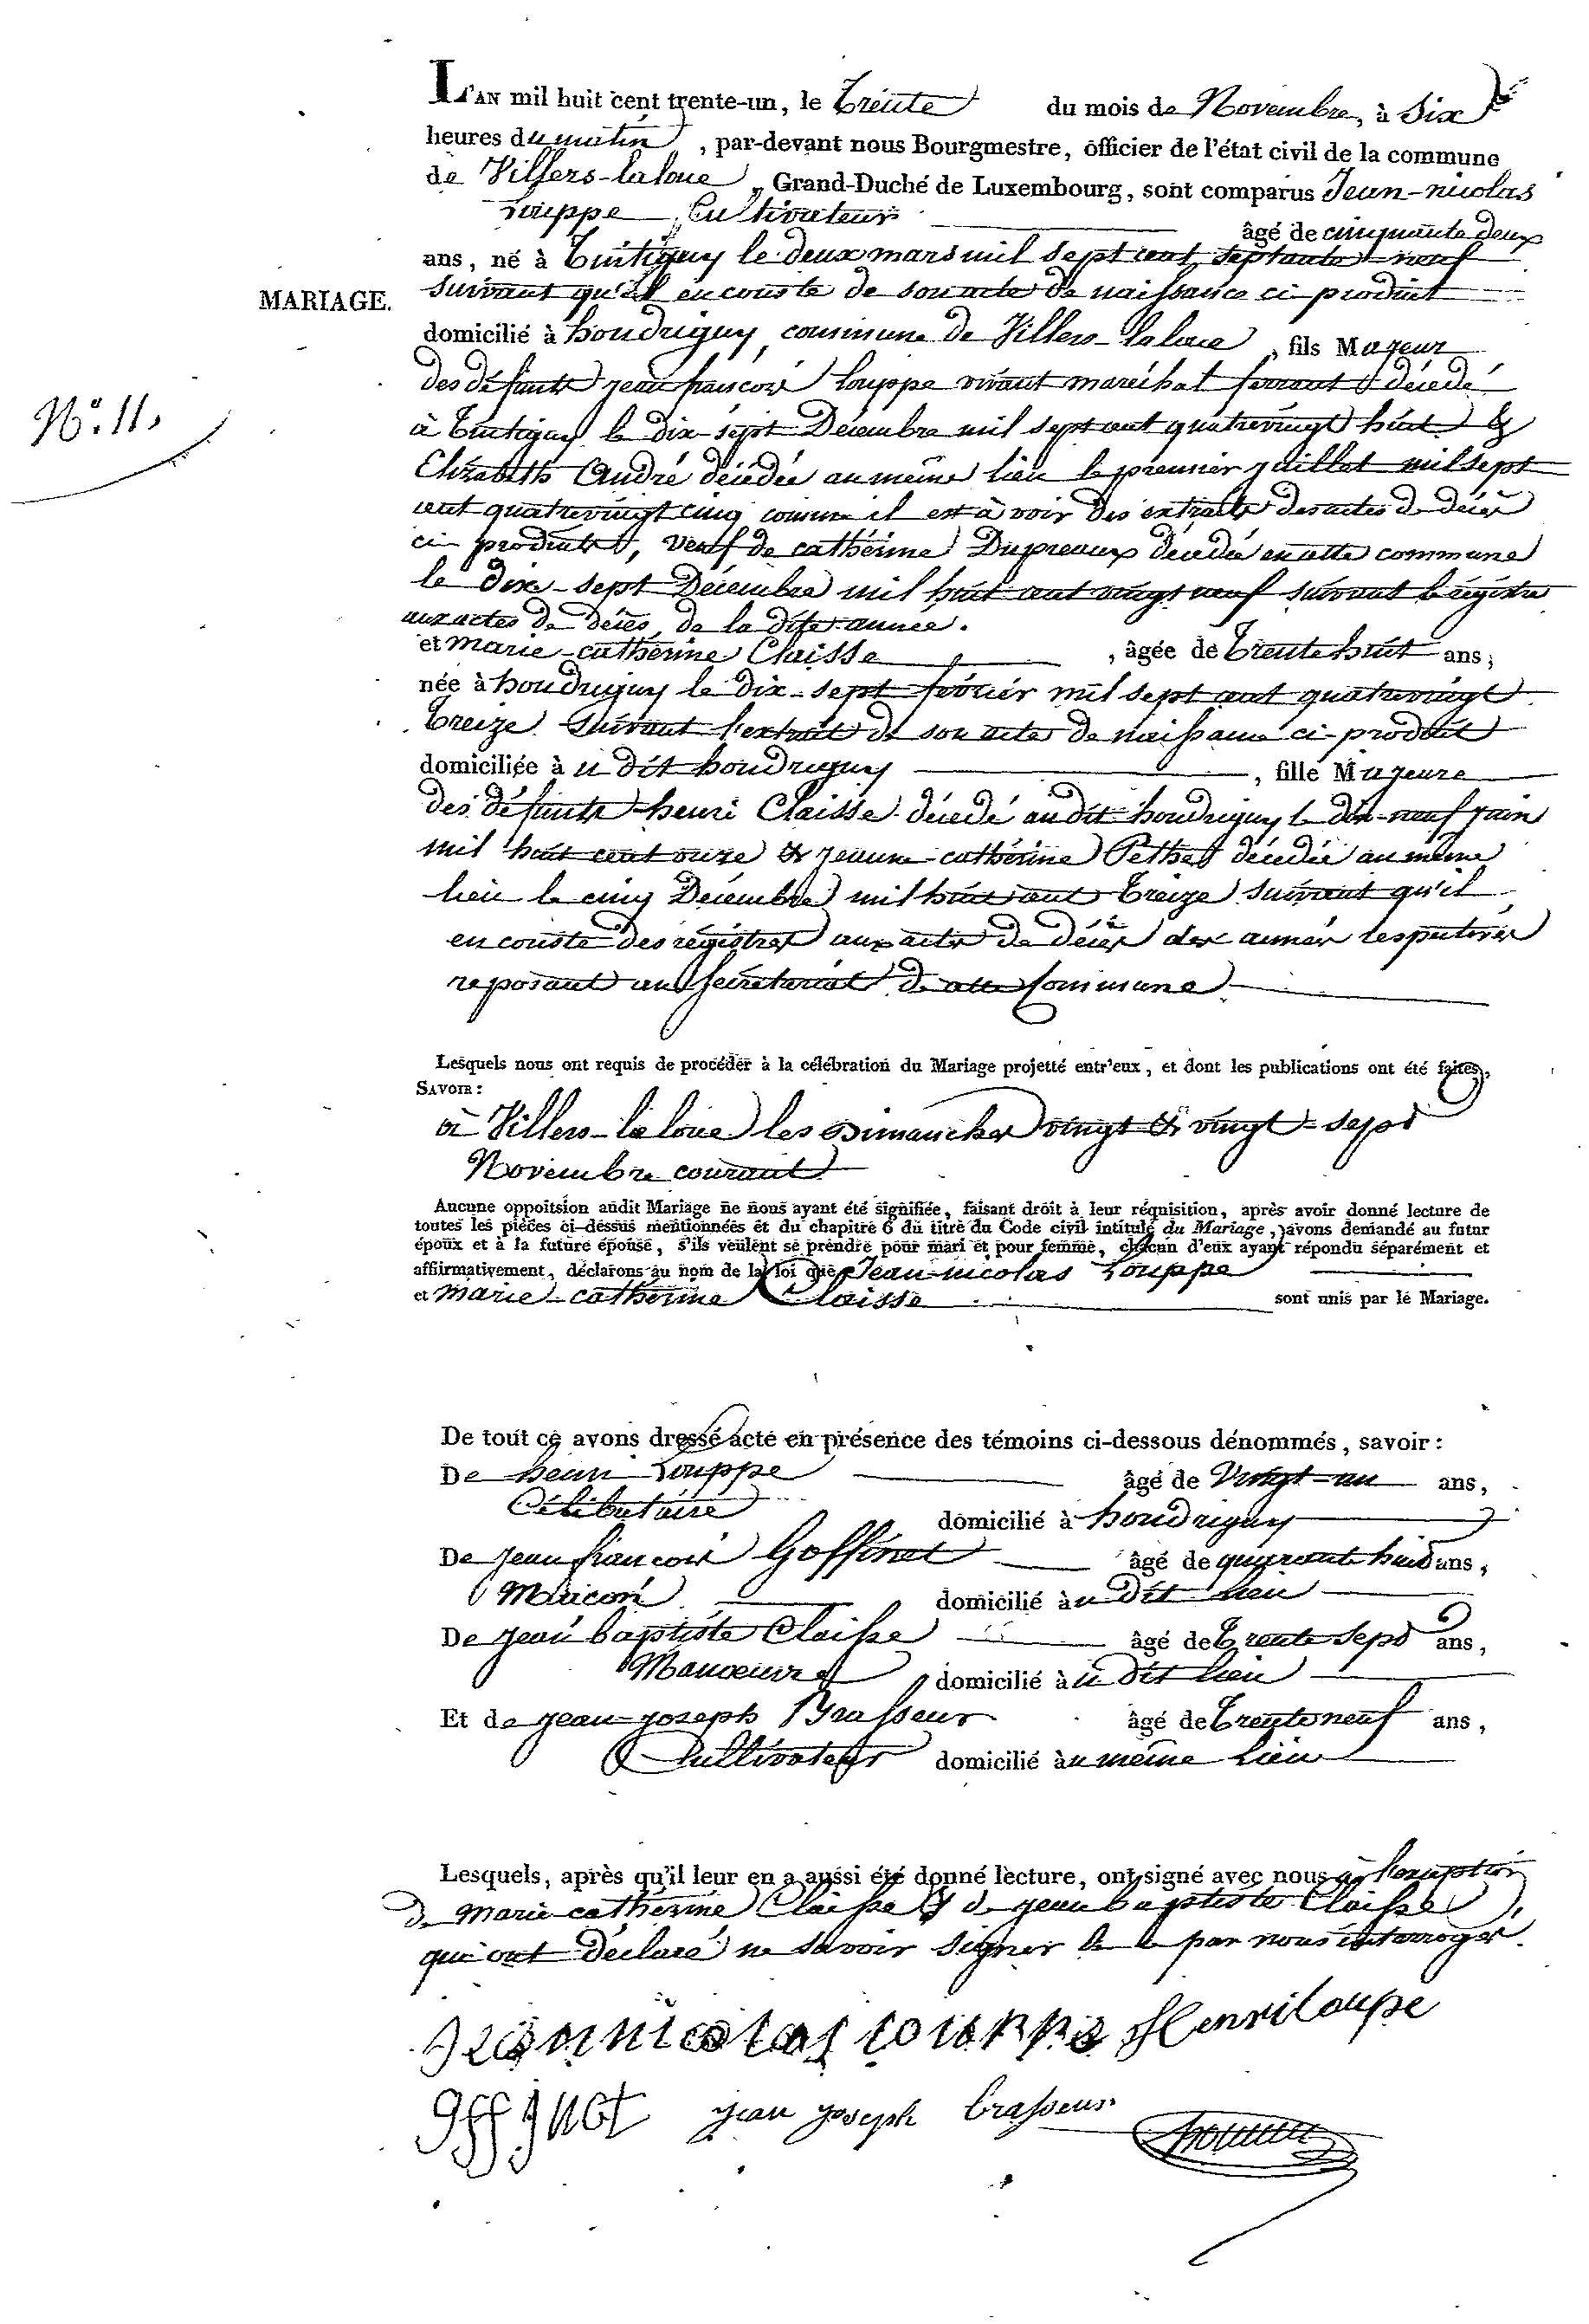 L'AN mil huit cent trente-un, le Trente du mois de Novembre, à Six
heures du matin, par-devant nous Bourgmestre, officier de l'état civil de la commune
de Villers-laloue, Grand-Duché de Luxembourg, sont comparus Jean-nicolas
Louppe, Cultivateur âgé de cinquante deux
ans, né à Tintigny le deux mars mil sept cent septante-neuf
MARIAGE.
suivant qu'il en conste de son acte de naissance ci-produit
domicilié à houdrigny, commune de Villers-laloue, fils Majeur
N.° 11.
des défunts jean françois louppe vivant maréchal ferrant & décédé
à Tintigny le dix-sept Décembre mil sept cent quatrevingt huit &
Elizabeth André décédée au même lieu le premier juillet mil sept
cent quatrevingt cinq comme il est à voir des extraits des actes de décès
ci-produits, veuf de cathérine Dupreaux décédée en cette commune
le dix-sept Décembre mil huit cent vingt neuf suivant le régistre
aux actes de décès de la dite année.
et marie-cathérine Claisse, âgée de Trente huit ans,
née à houdrigny le dix-sept février mil sept cent quatrevingt
Treize suivant l'extrait de son acte de naissance ci-produit
domiciliée à u dit houdrigny, fille Majeure
des défunts henri Claisse décédé au dit houdrigny le dix-neuf juin
mil huit cent onze & jeanne-cathérine Pethe décédée au même
lieu le cinq Décembre mil huit cent Treize suivant qu'il
en conste des régistres aux actes de décès des années respectives
reposant au secrétariat de cette Commune
Lesquels nous ont requis de procéder à la célébration du Mariage projetté entr'eux, et dont les publications ont été faites,
SAVOIR :
à Villers-laloue les Dimanches vingt & vingt-sept
Novembre courant
Aucune oppoitsion audit Mariage ne nous ayant été signifiée, faisant droit à leur réquisition, après avoir donné lecture de
toutes les pièces ci-dessus mentionnées et du chapitre 6 du titre du Code civil intitulé du Mariage, avons demandé au futur
époux et à la future épouse, s'ils veulent se prendre pour mari et pour femme, chacun d'eux ayant répondu séparément et
affirmativement, déclarons au nom de la loi que Jean-nicolas Louppe
et marie-cathérine Claisse sont unis par le Mariage.
De tout ce avons dressé acte en présence des témoins ci-dessous dénommés, savoir :
De henri Louppe âgé de Vingt-un ans,
Célibataire domicilié à houdrigny
De jean françois Goffinet âgé de quarante huit ans,
Maçon domicilié à u dit lieu
De jean baptiste Claisse âgé de Trente Sept ans,
Manoeuvre domicilié à u dit lieu
Et de jean-joseph Brasseur âgé de Trente neuf ans,
Cultivateur domicilié à u même lieu
Lesquels, après qu'il leur en a aussi été donné lecture, ont signé avec nous à l'exception
de marie-cathérine Claisse & de jean baptiste Claisse
qui ont déclaré ne savoir signer de ce par nous interrogés.
jean nicolas louppe Henri loupe
gffinet jean joseph brasseur